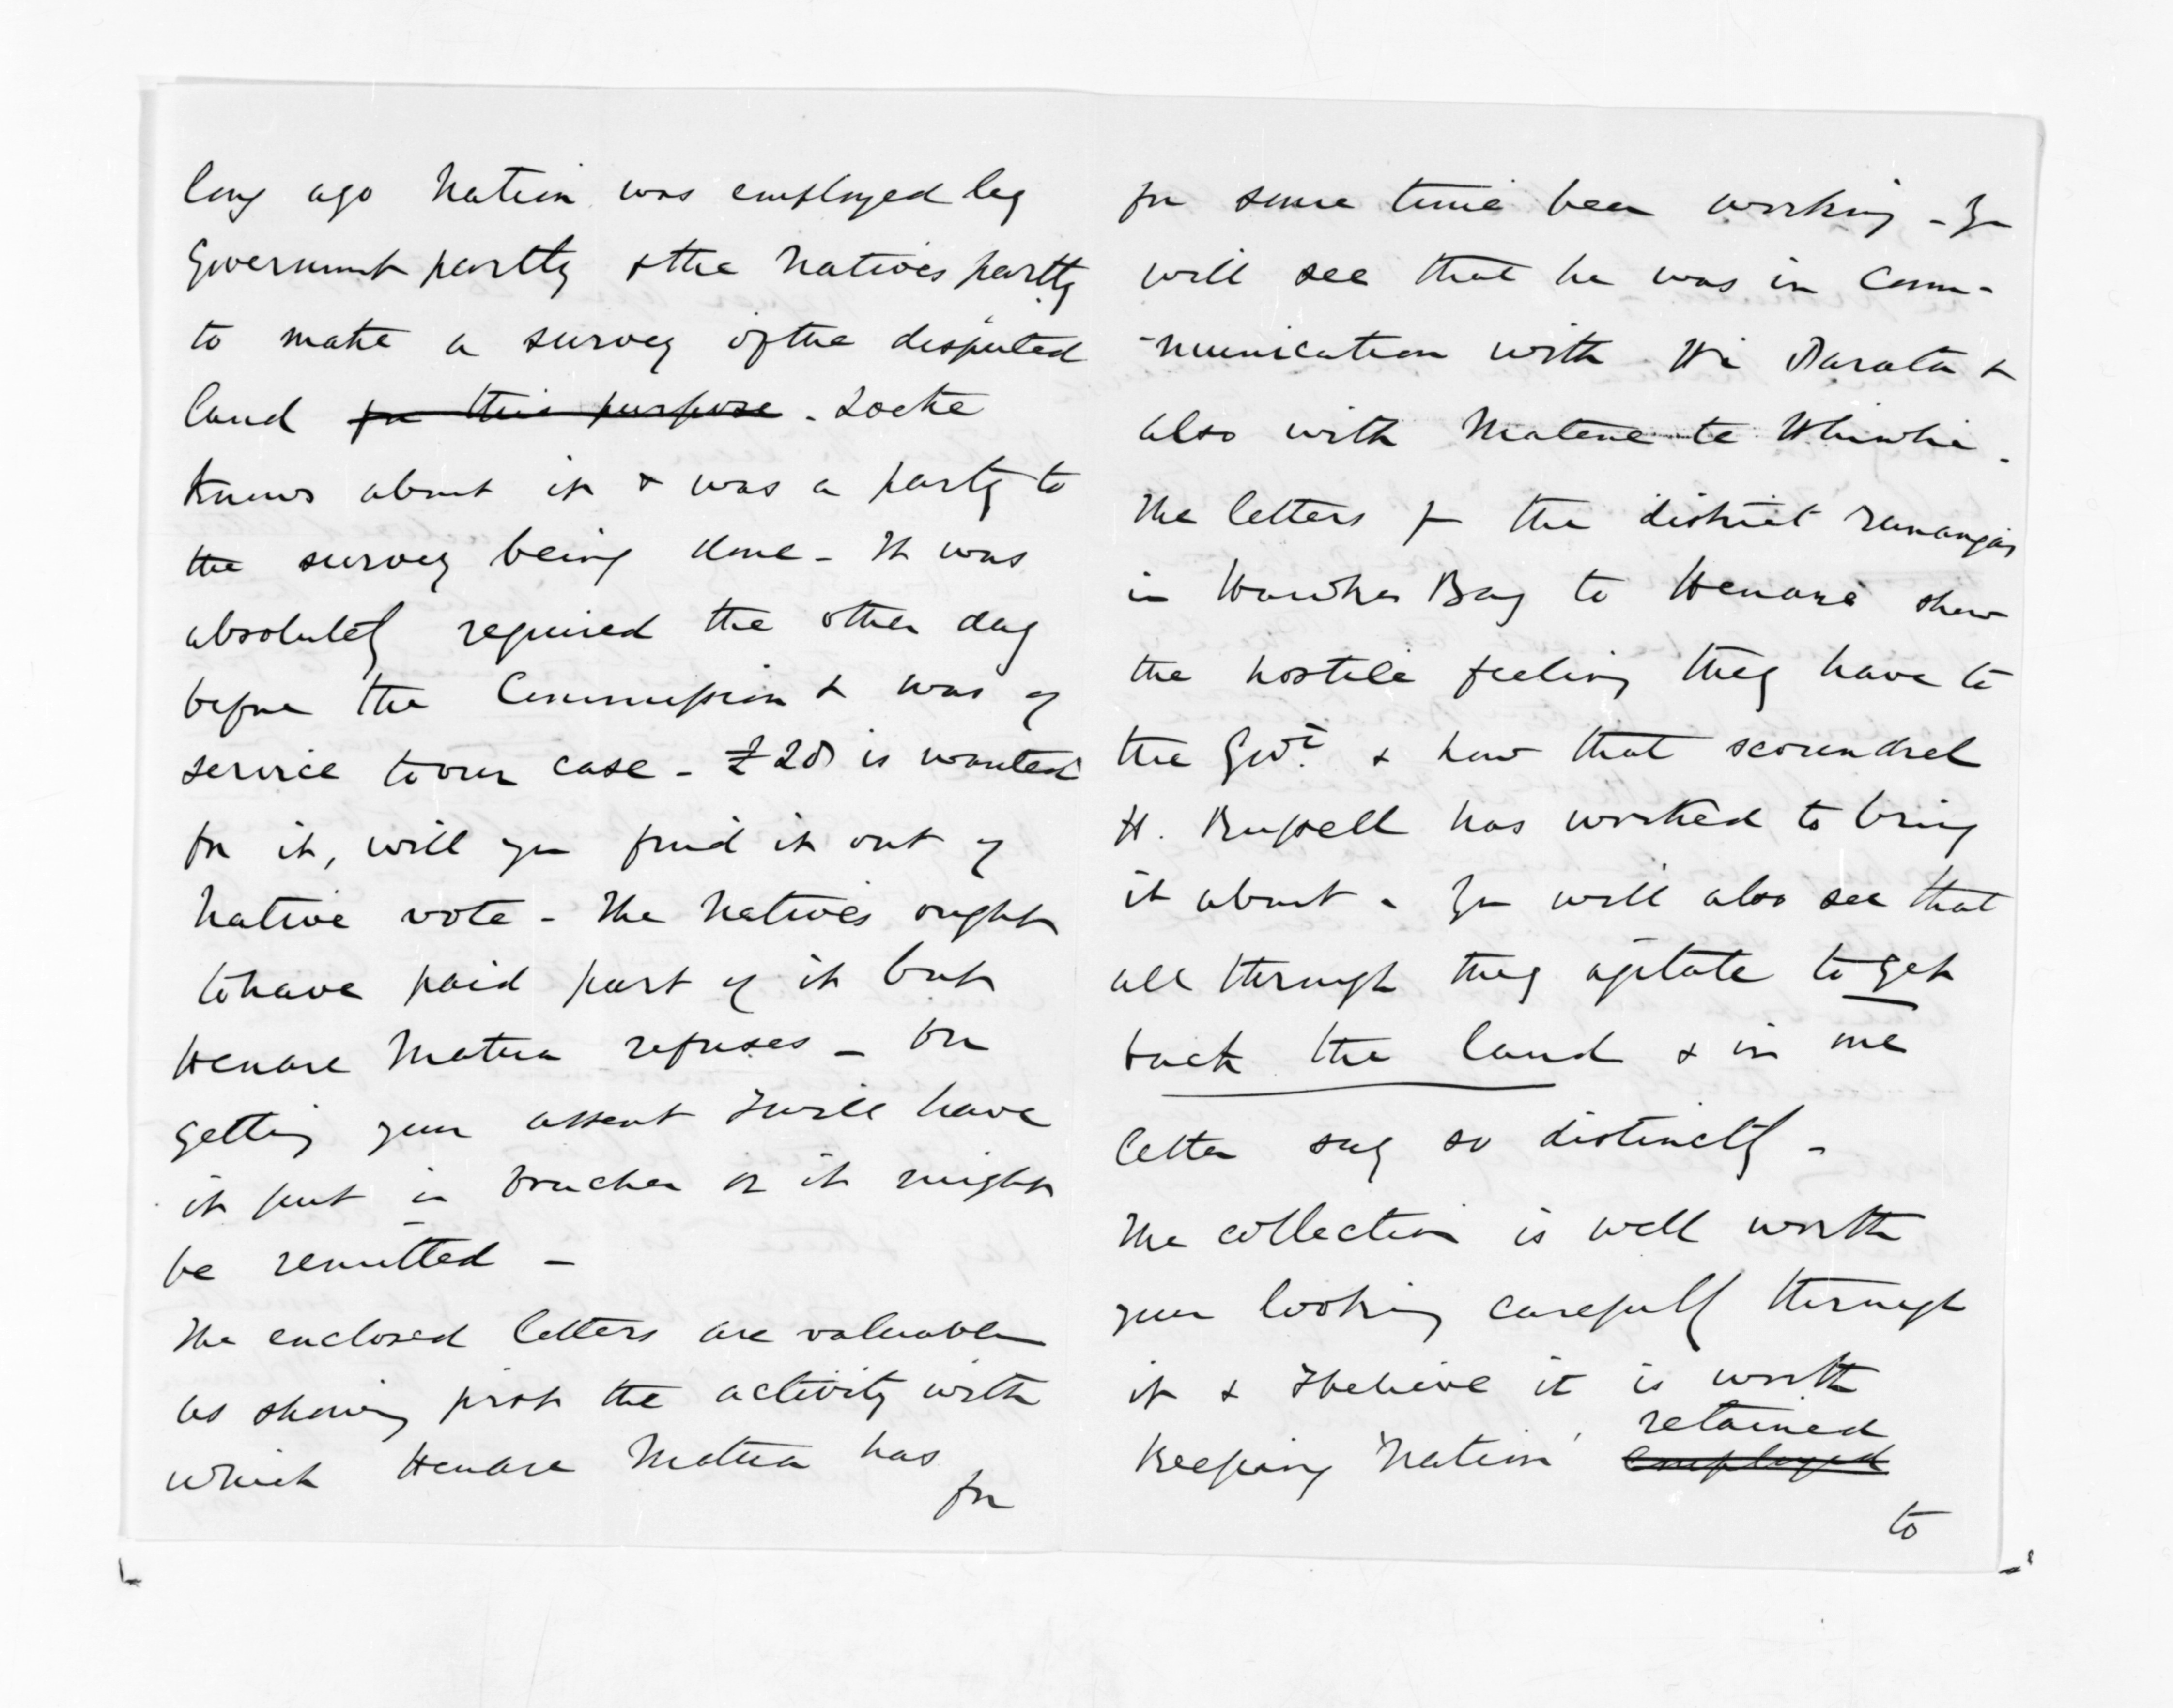 long ago Nation was employed by
Government partly & the Natives partly
to make a survey of the disputed
land for this purpose. Locke
knows about it & was a party to
the survey being done - It was
absolutely required the other day
before the Commission & was of
service to our case - £20 is wanted
for it, will you find it out of
Native vote - The Natives ought
to have paid part of it but
Henare Matua refuses - On
getting your assent I will have
it put in voucher or it might
be remitted -
The enclosed letters are valuable
as showing first the activity with
which Henare Matua has
for
for some time been working - You
will see that he was in Com-
-munication with Wi Parata &
also with Matene te Whiwhi.
The letters fr the district runangas
in Hawkes Bay to Henare show
the hostile feeling they have to
the Govt. & how that scoundrel
H. Russell has worked to bring
it about - You will also see that
all through they agitate to get
back the land & in one
letter say so distinctly -
The collection is well worth
your looking carefully through
it & I believe it is worth
retained
keeping 'Nation' employed
to